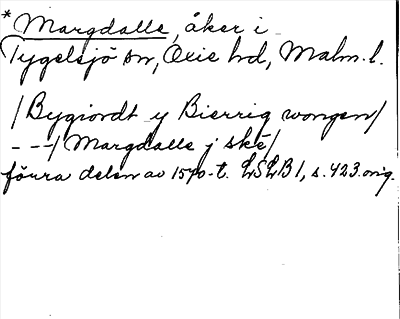 * Margdalle, åker i
Tygelsjö sn, Oxie hd, Malm. l.
/Bygiordt y Bierrig wongen/
- - -/ Margdalle j ske/
förra delen av 1570-t. LSLB 1, s. 423. orig.